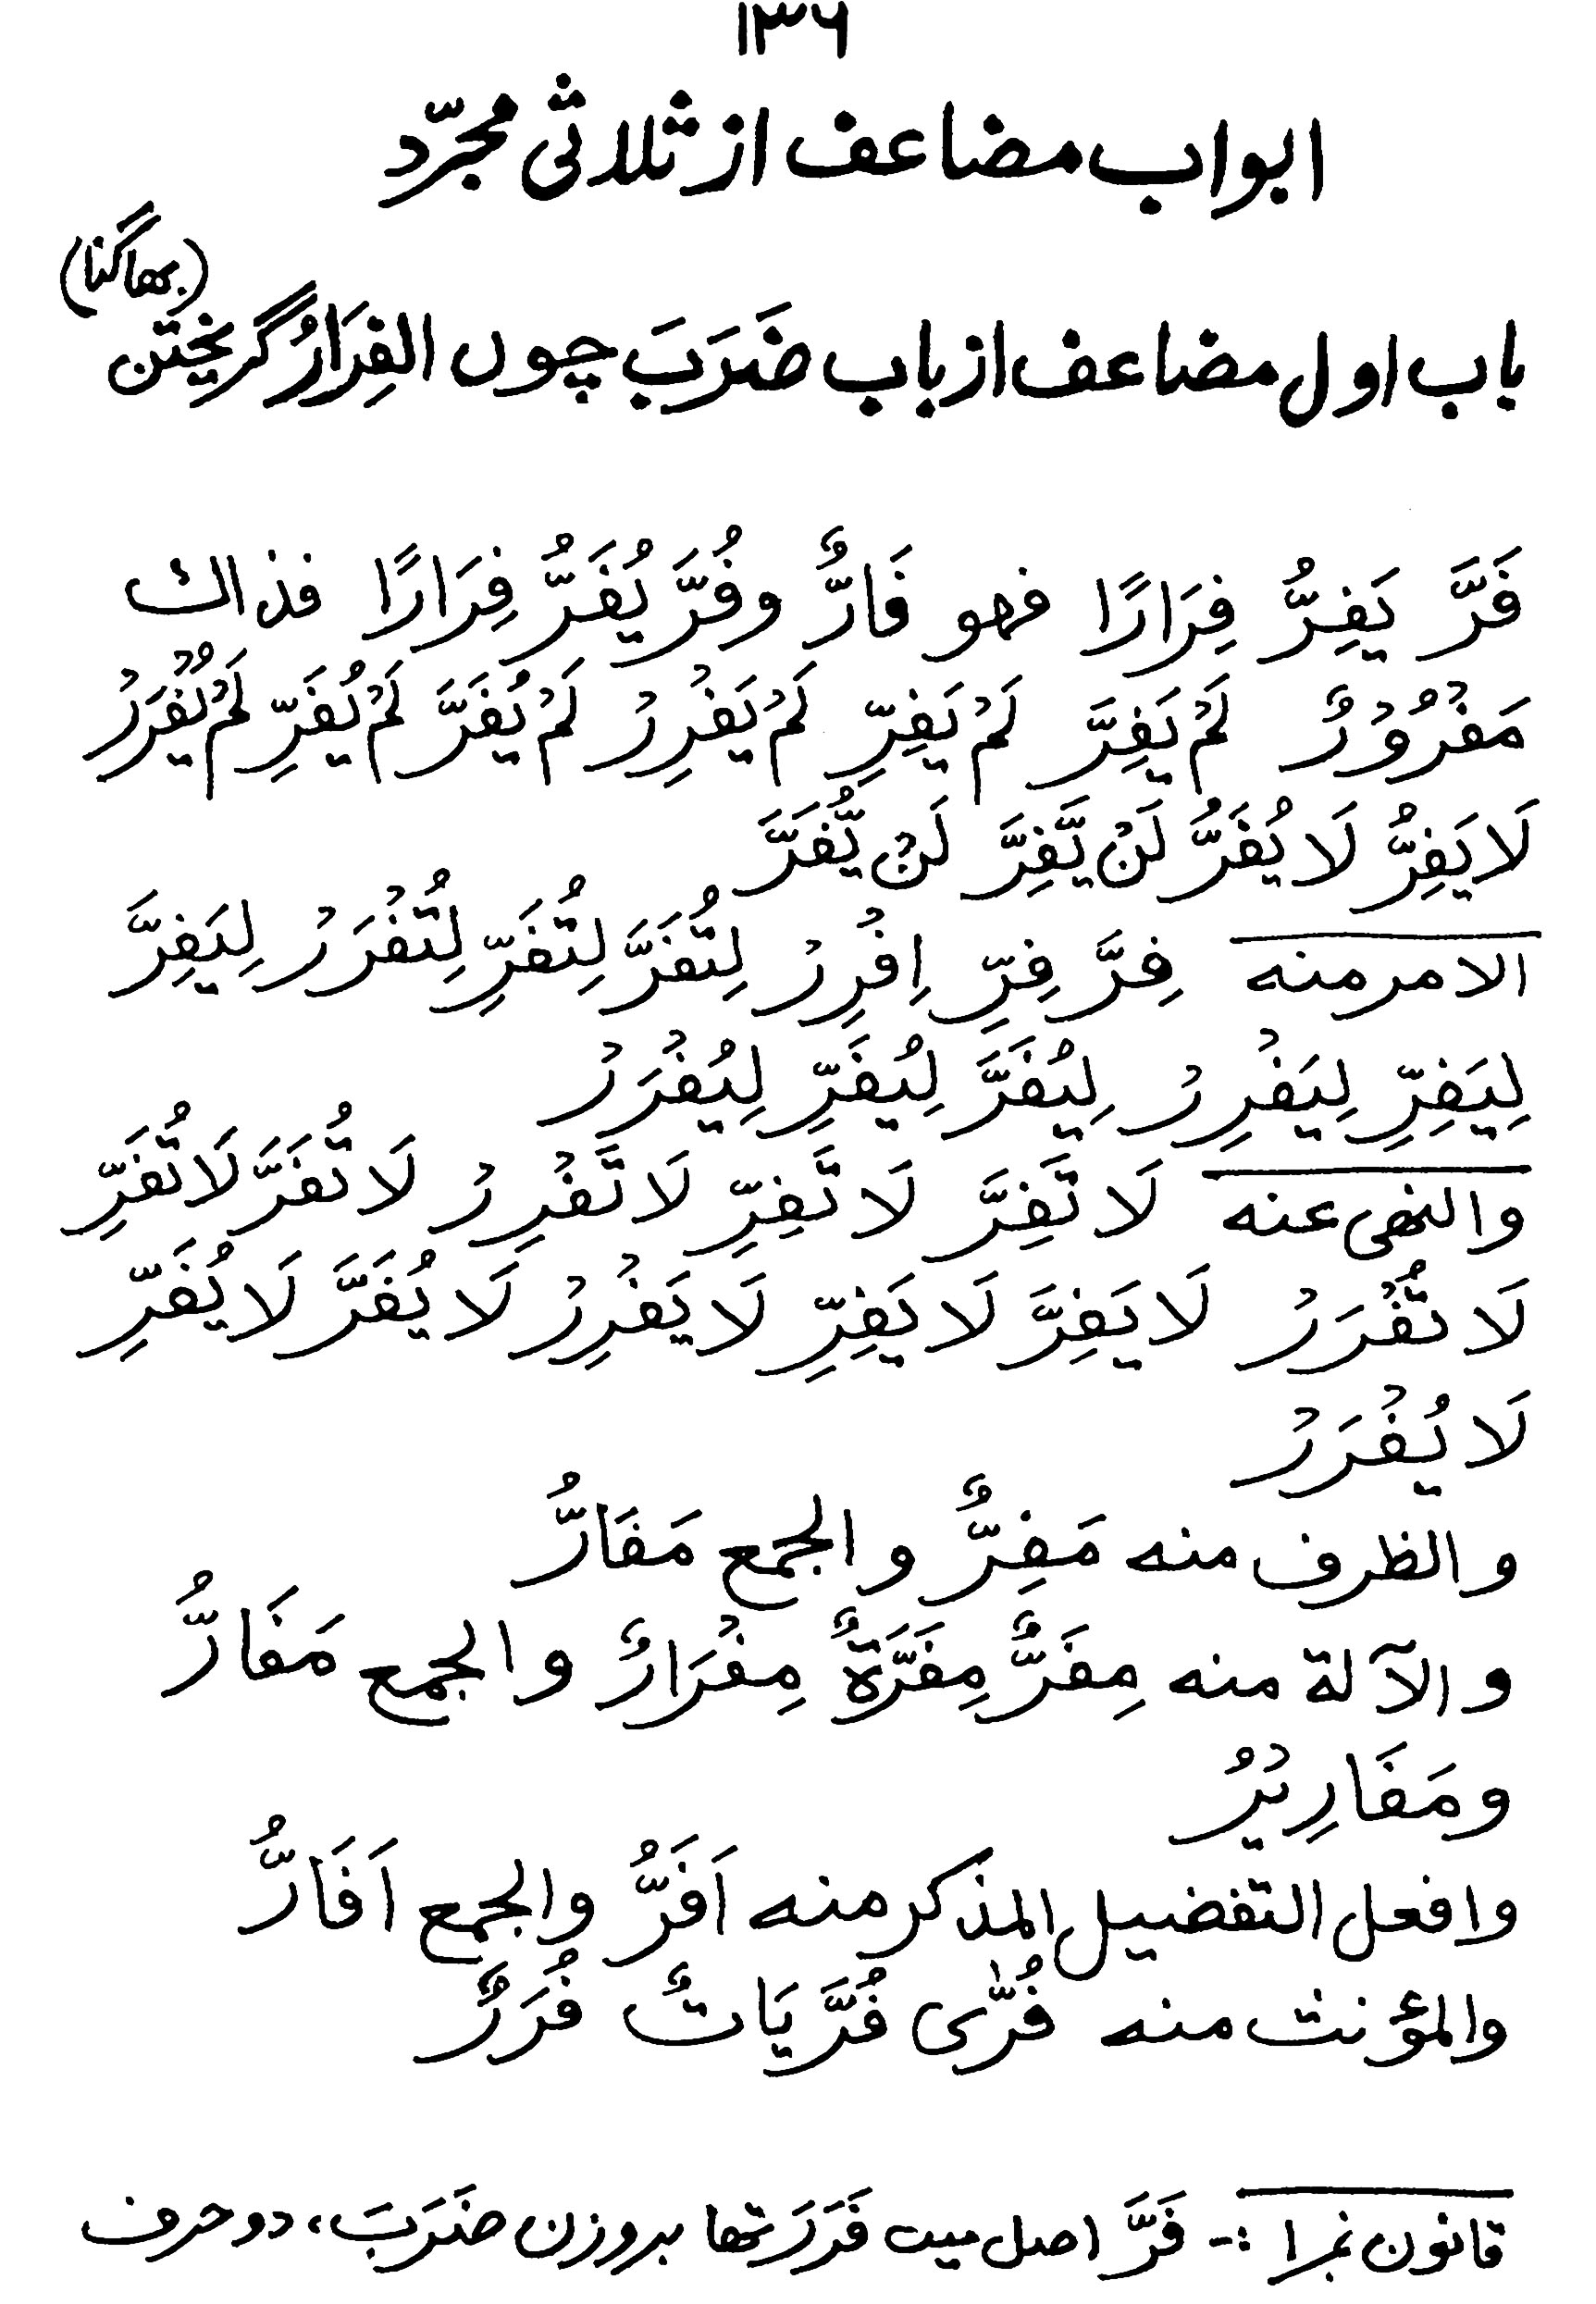 ١٣٦
ابواب مضاعف از ثلاثی مجرّد
(بھاگنا)
باب اول مضاعف از باب ضَرَبَ چوں الفِرَارُ گریختن
فَرَّ يَفِرُّ فِرَارًا فهو فَارٌّ وفُرَّ يُفَرُّ فِرَارًا فذاك
مَفْرُوْرٌ لَمْ يَفِرَّ لَمْ يَفِرِّ لَمْ يَفْرِرْ لَمْ يُفَرَّ لَمْ يُفَرِّ لَمْ يُفْرَرْ
لَا يَفِرُّ لَا يُفَرُّ لَنْ يَّفِرَّ لَنْ يُّفَرَّ
الامر منه فِرَّ فِرِّ اِفْرِرْ لِتُفَرَّ لِتُفَرِّ لِتُفْرَرْ لِيَفِرَّ
لِيَفِرِّ لِيَفْرِرْ لِيُفَرَّ لِيُفَرِّ لِيُفْرَرْ
والنهى عنه لَا تَفِرَّ لَا تَفِرِّ لَا تَفْرِرْ لَا تُفَرَّ لَا تُفَرِّ
لَا تُفْرَرْ لَا يَفِرَّ لَا يَفِرِّ لَا يَفْرِرْ لَا يُفَرَّ لَا يُفَرِّ
لَا يُفْرَرْ
والظرف منه مَفِرٌّ والجمع مَفَارُّ
والآلة منه مِفَرٌّ مِفَرَّةٌ مِفْرَارٌ والجمع مَفَارُّ
ومَفَارِيْرُ
وافعل التفضيل المذكر منه اَفَرُّ والجمع اَفَارُّ
والمؤنث منه فُرّٰى فُرَّيَاتٌ فُرَرٌ
قانون نمبر ١ :- فَرَّ اصل میں فَرَرَ تھا بروزن ضَرَبَ، دو حرف